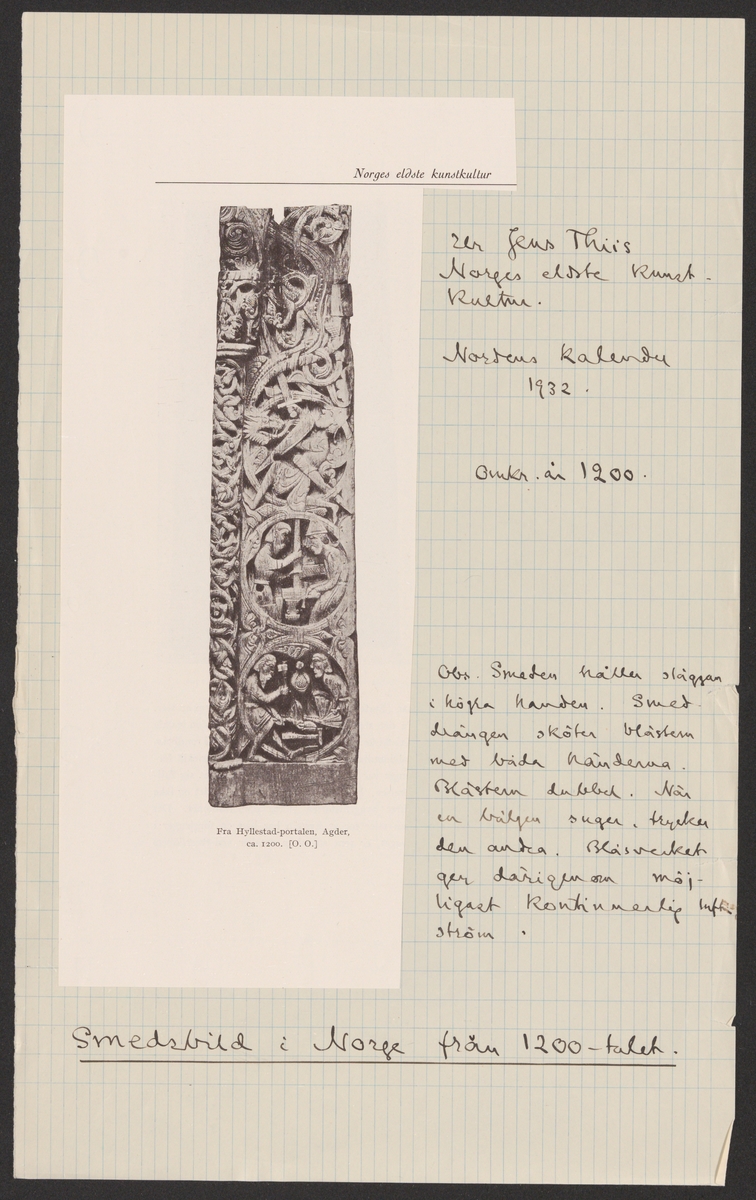 Norges eldste kunstkultur
ur Jens Thiis
Norges eldste kunst-
kultur.
Nordens kalender
1932.
Omkr. år 1200.
Obs. Smeden håller släggan
i högra handen. Smed-
drängen sköter blästern
med båda händerna.
Blästern dubbel. När
en bälgen suger, trycker
den andra. Blåsverket
ger därigenom möj-
ligast kontinuerlig luft-
ström.
Fra Hyllestad-portalen, Agder,
ca. 1200. [O. O.]
Smedsbild i Norge från 1200-talet.